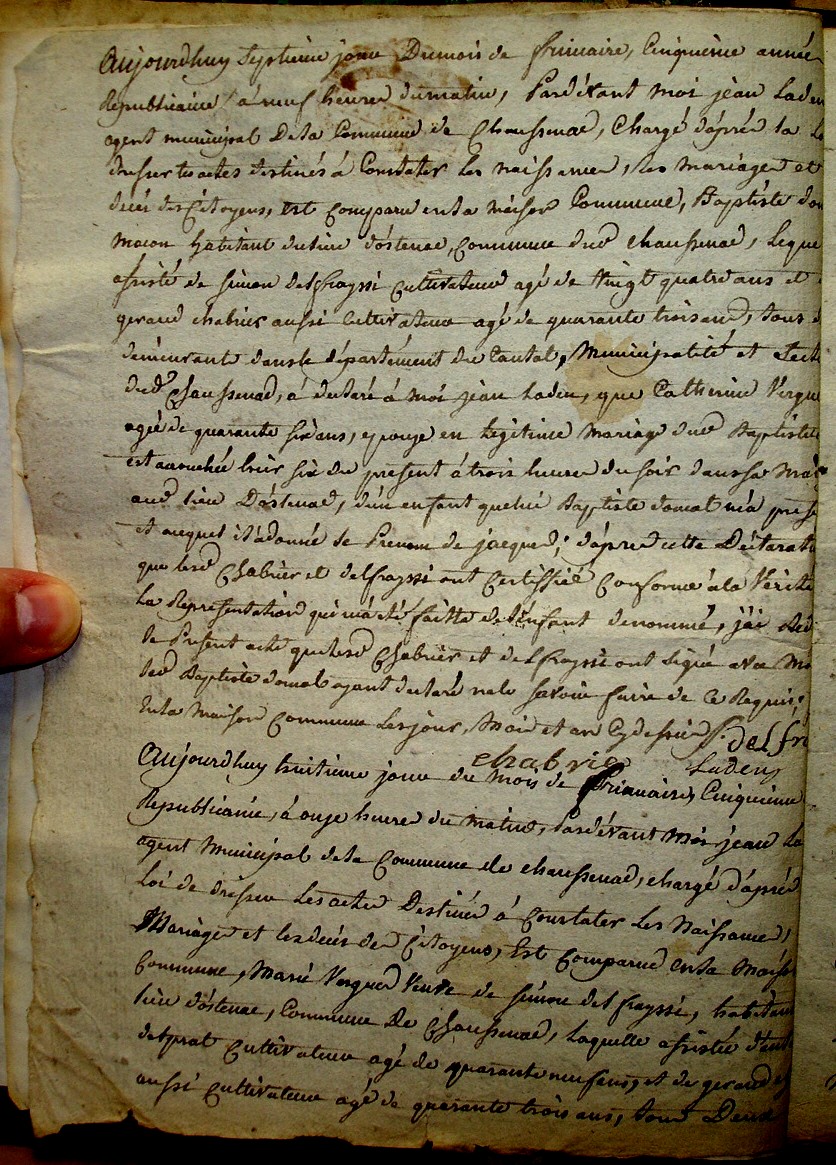 Aujourdhuy septieme jour Dumois de frimaire, Cinquieme année
Republicaine, à neuf heures dumatin, Pardevant moi jean Laden
agent municipal Dela Commune de Chaussenac, Chargé d'après la
dresser les actes destinés à Constater les naissances, les mariages et
décés des Citoyens, Est Comparu en la maison Commune, Baptiste
macon habitant du lieu d'ostenac, Commune dud chaussenac, lequel
assisté de simon delfrayssi cultivateur agé de vingt quatre ans et
geraud chabrier aussi Cultivateur agé de quarante trois ans, tous
demeurant dansle département du Cantal, Municipalité et
dud Chaussenac, à declaré à moi jean Laden, que Catherine
agée de quarante six ans, epouse en legitime mariage dud Baptiste
est accouchée hier six du present à trois heures du soir dans sa
aud lieu D'ostenac, d'un enfant que lui Baptiste domal m'a
et auquel il à donné le Prenom de jacques; d'après cette Déclarati
que lesd Chabrier et delfrayssi ont Certiffié Conforme à la Verité
la Representation qui m'a été faitte de l'enfant denommé, j'ai
le Present acte que lesd Chabrier et delfrayssi ont signé avec
led Baptiste domal ayant declaré nele savoir faire de ce Requis
En la Maison Commune les jour, Mois et an Cydessus S. delfr
chabrie Laden
Aujourdhuy huitieme jour du mois de frimaire, Cinquieme
Republicaine, à onze heures du matin, Pardevant Moi jean La
agent Municipal dela Commune de chaussenac, chargé d'après
Loi de dresser les actes Destinés à Constater les Naissances,
Mariages et les décés des Citoyens, Est Comparue en la Maiso
Commune, Marie Vergnes Veuve de simon delfrayssi, habitan
lieu d'ostenac, Commune De Chaussenac, laquelle assistée
delprat Cultivateur agé de quarante neuf ans, et de geraud
aussi Cultivateur agé de quarante trois ans, tous Deux